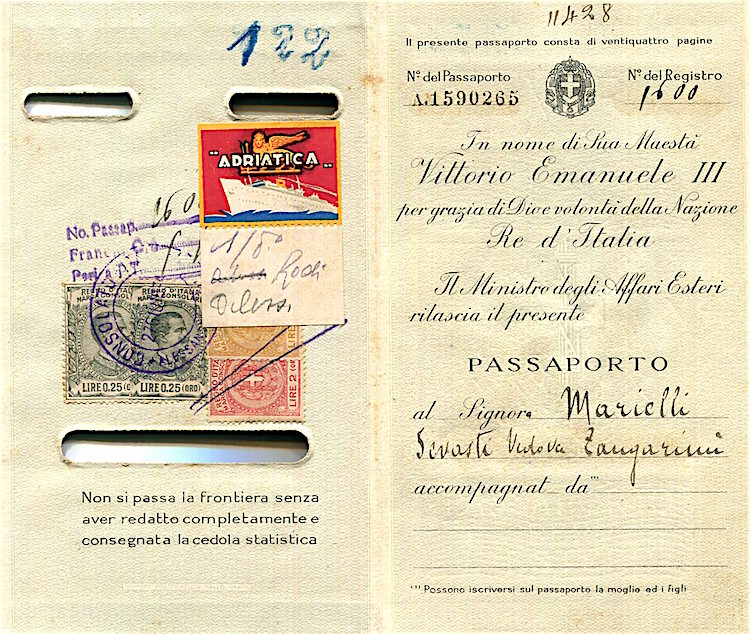 122
"ADRIATICA"
1600
No. Passap.
Franc
Perc
1/5.
Rodi
REGNO D'ITALIA REGNO D'ITALIA
MARCA CONSOLARE MARCA CONSOLARE
CONSOLATO
LIRE 0.25 (ORO) LIRE 0.25 (ORO)
LIRE 2 (OR
Non si passa la frontiera senza
aver redatto completamente e
consegnata la cedola statistica
11428
Il presente passaporto consta di ventiquattro pagine
No. del Passaporto No. del Registro
A.1590265 1600
In nome di Sua Maestà
Vittorio Emanuele III
per grazia di Dio e volontà della Nazione
Re d'Italia
Il Ministro degli Affari Esteri
rilascia il presente
PASSAPORTO
al Signora Marielli
Sevasti Vedova Zangarinu
accompagnat da (1)
(1) Possono iscriversi sul passaporto la moglie ed i figli